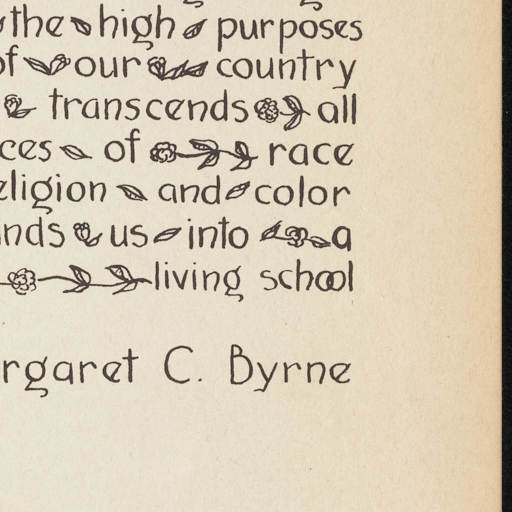 the high purposes
of our country
transcends all
ces of race
eligion and color
nds us into a
living school
rgaret C. Byrne